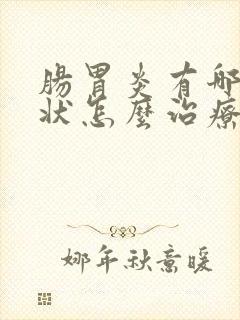 腸胃炎有哪
狀怎麼治療
娜年秋意暖